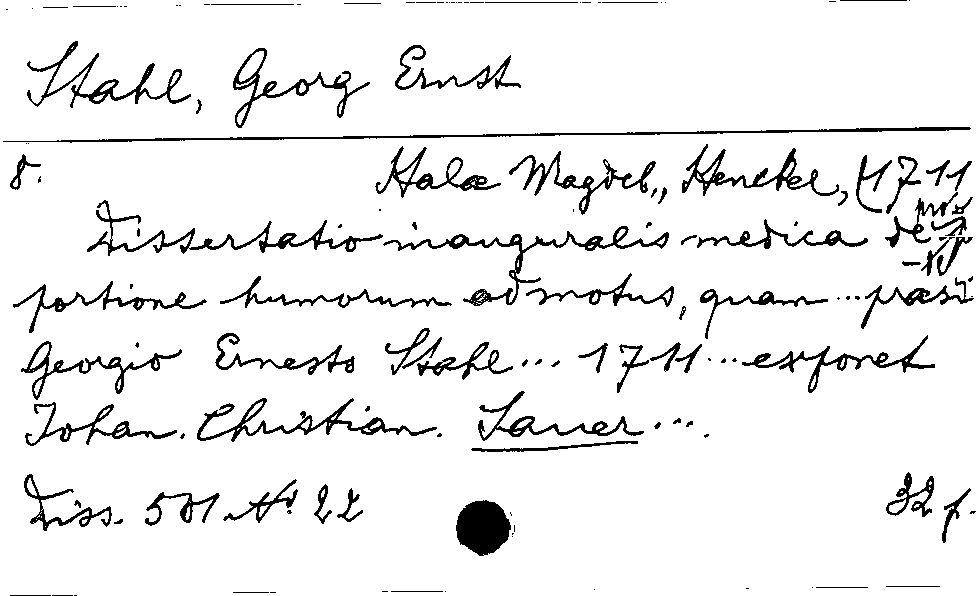 Stahl, Georg Ernst
8.
Halæ Magdeb., Henckel, (1711
Dissertatio inauguralis medica de pro-
portione humorum ad motus, quam ... præsi
Georgio Ernesto Stahl ... 1711 ... exponet
Johan. Christian. Sauer ....
Diss. 501. No 22
32 p.